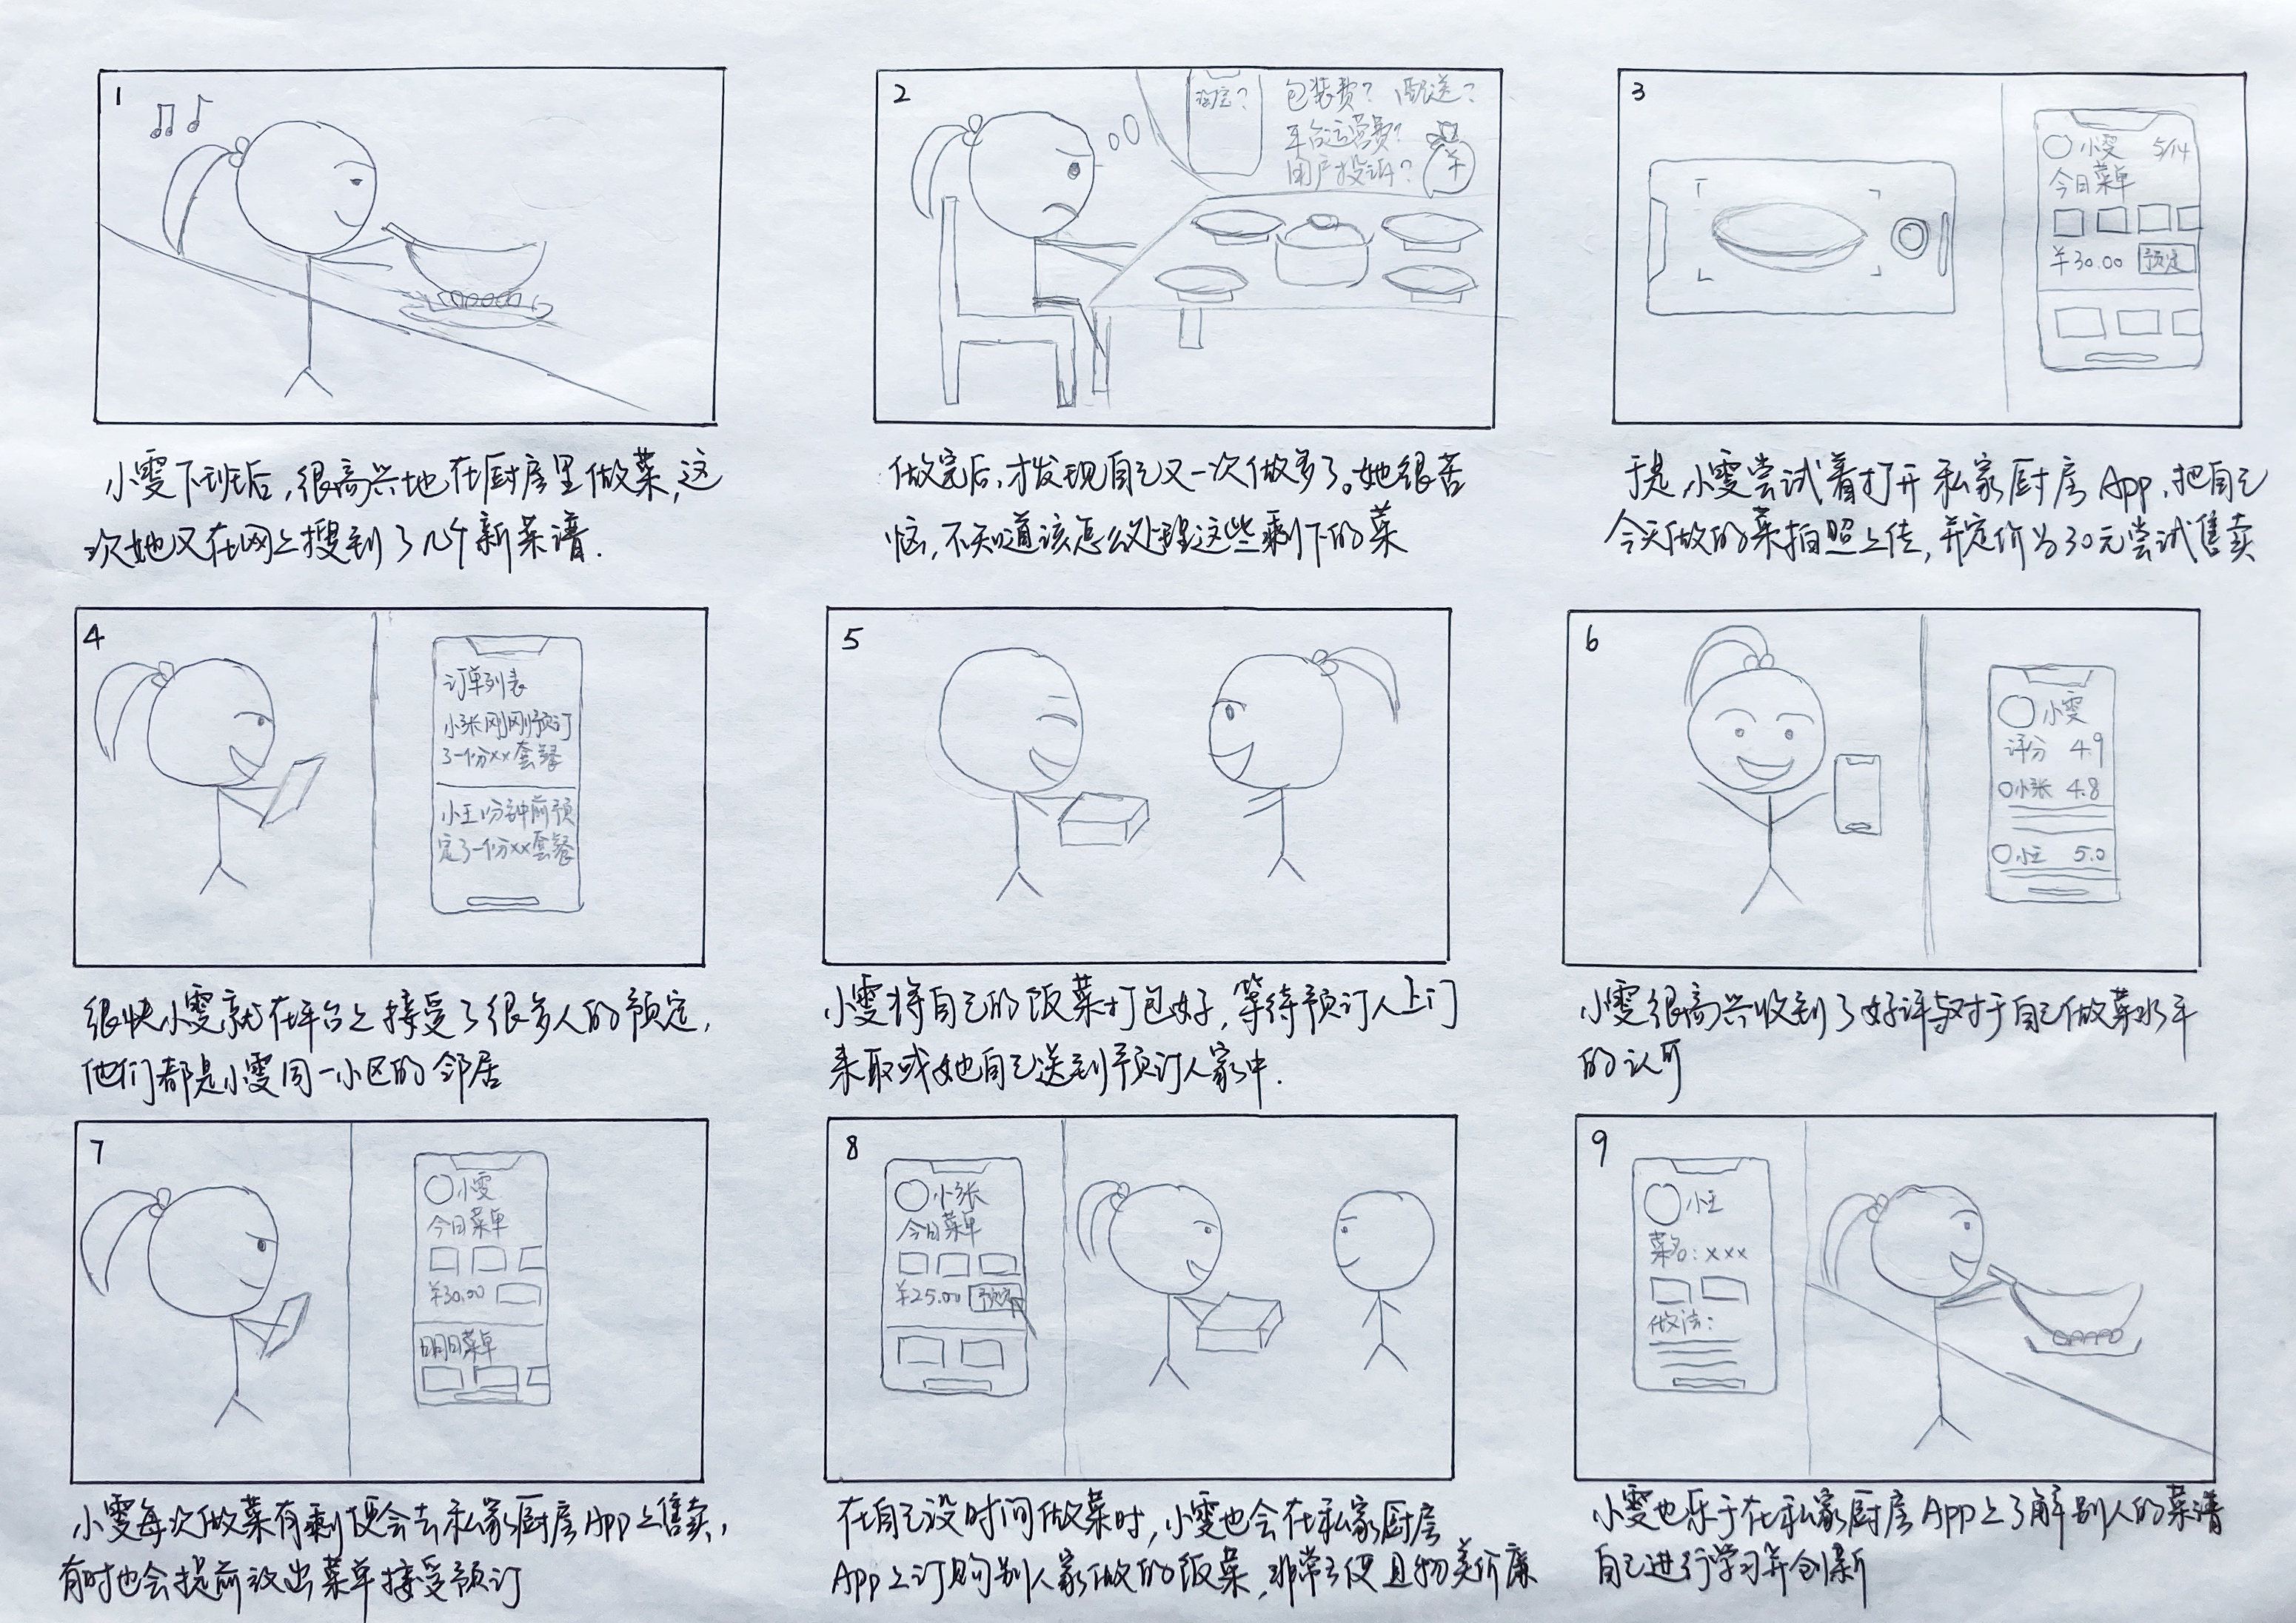 1
小雯下班后,很高兴地在厨房里做菜,这
次她又在网上搜到了几个新菜谱.
2
包装费? 配送?
平台运营费?
用户投诉?
¥
做完后,才发现自己又一次做多了。她很苦
恼,不知道该怎么处理这些剩下的菜
3
小雯 5/14
今日菜单
¥30.00 预定
于是,小雯尝试着打开私家厨房App,把自己
今天做的菜拍照上传,并定价为30元尝试售卖
4
订单列表
小张刚刚预订
了一份xx套餐
小王1分钟前预
定了一份xx套餐
很快小雯就在平台上接受了很多人的预定,
他们都是小雯同一小区的邻居
5
小雯将自己的饭菜打包好,等待预订人上门
来取或她自己送到预订人家中.
6
小雯
评分 4.9
小张 4.8
小王 5.0
小雯很高兴收到了好评与对于自己做菜水平
的认可
7
小雯
今日菜单
¥30.00
明日菜单
小雯每次做菜有剩便会去私家厨房App上售卖,
有时也会提前放出菜单接受预订
8
小张
今日菜单
¥25.00 预定
在自己没时间做菜时,小雯也会在私家厨房
App上订购别人家做的饭菜,非常方便且物美价廉
9
小王
菜名:xxx
做法:
小雯也乐于在私家厨房App上了解别人的菜谱
自己进行学习并创新